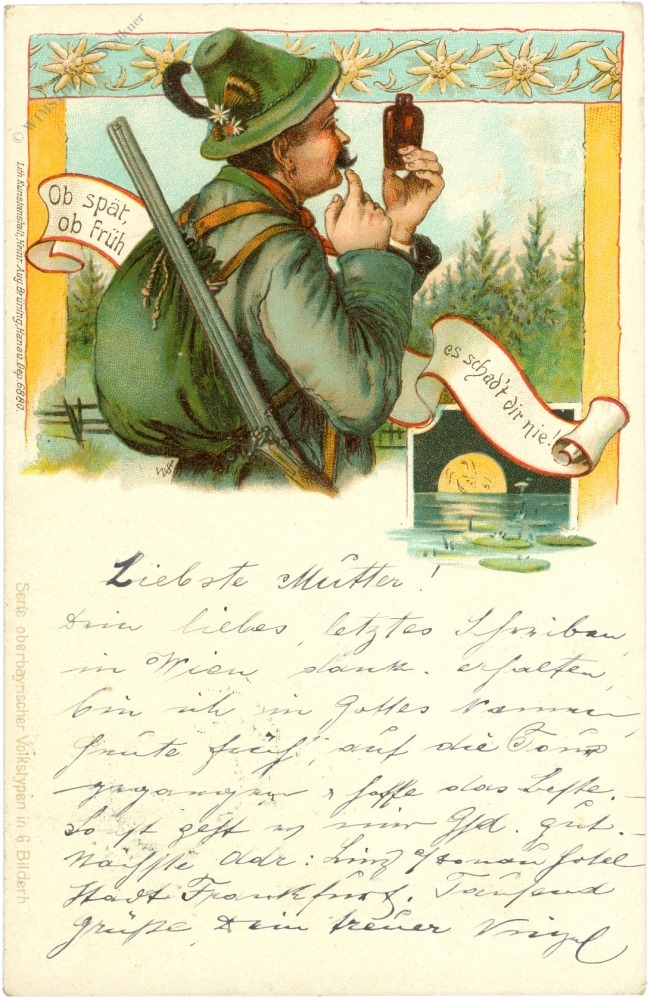 Ob spät,
ob früh
es schad't dir nie!
Lith. Kunstanstalt, Heinr. Aug. Brüning, Hanau. Dep. 6880.
Serie oberbayrischer Volkstypen in 6 Bildern
Liebste Mutter!
Dein liebes, letztes Schreiben,
in Wien dank. erhalten,
bin ich in Gottes Namen,
heute früh, auf die Tour
gegangen & hoffe das Beste. –
Sonst geht es mir Gsd. gut. –
Nächste Adr: Linz a/Donau Hotel
Stadt Frankfurt. Tausend
Grüße, Dein treuer